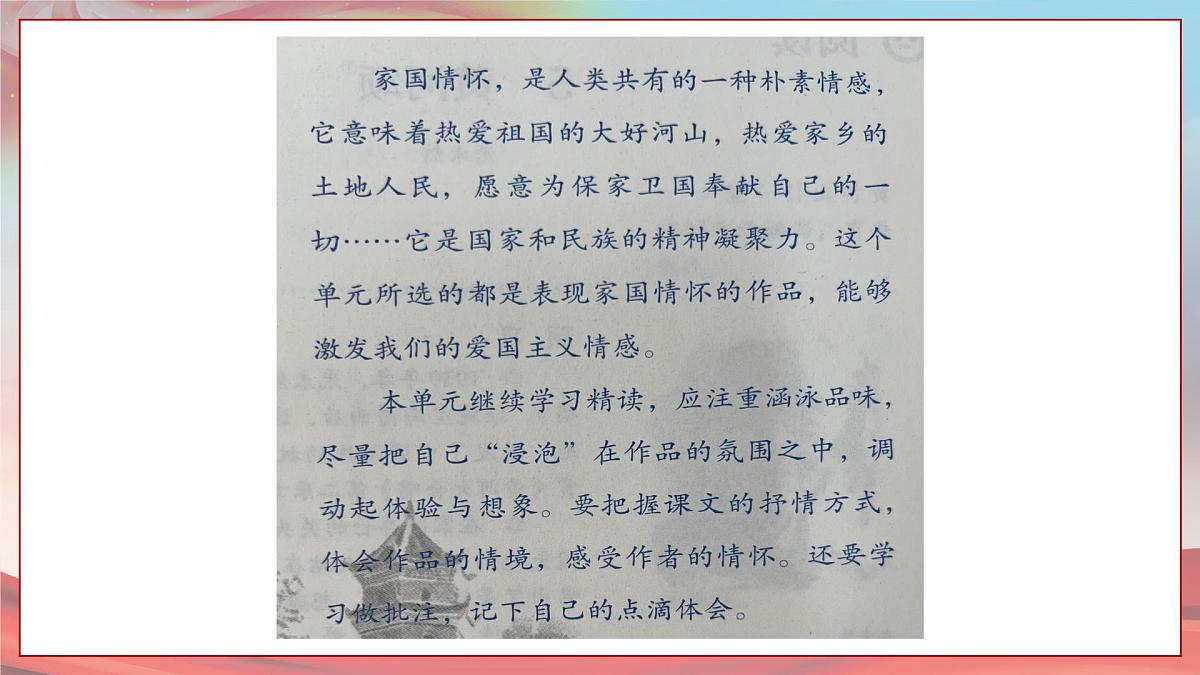 家国情怀，是人类共有的一种朴素情感，
它意味着热爱祖国的大好河山，热爱家乡的
土地人民，愿意为保家卫国奉献自己的一
切……它是国家和民族的精神凝聚力。这个
单元所选的都是表现家国情怀的作品，能够
激发我们的爱国主义情感。
本单元继续学习精读，应注重涵泳品味，
尽量把自己“浸泡”在作品的氛围之中，调
动起体验与想象。要把握课文的抒情方式，
体会作品的情境，感受作者的情怀。还要学
习做批注，记下自己的点滴体会。